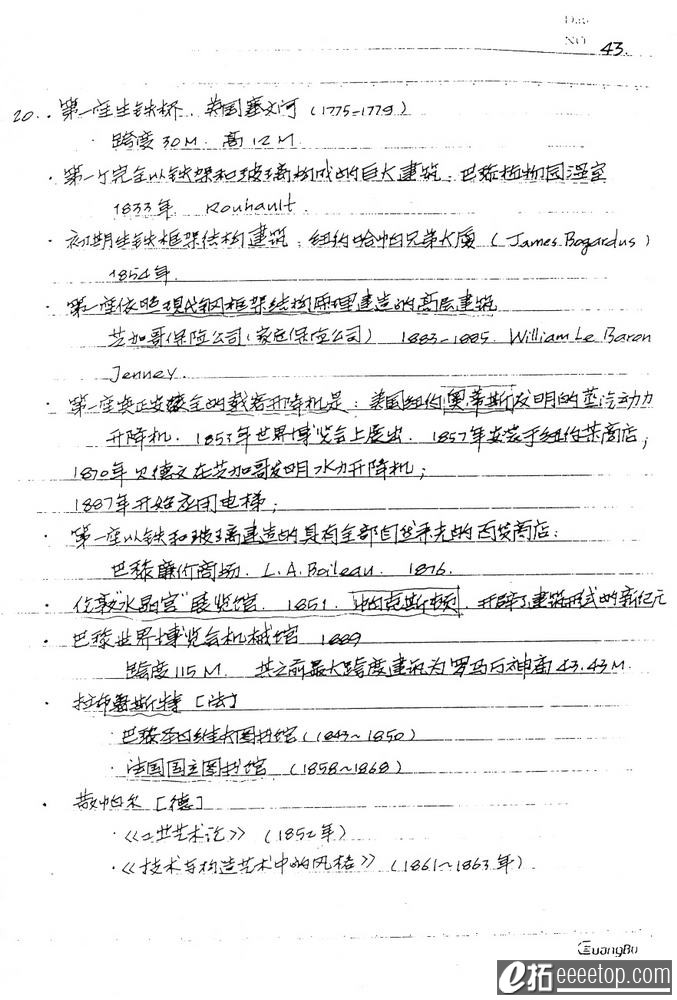 Date
NO 43.
20. · 第一座生铁桥. 英国塞文河 (1775-1779)
· 跨度30M. 高12M
· 第一个完全以铁架和玻璃构成的巨大建筑: 巴黎植物园温室
1833年 Rouhault
· 初期生铁框架结构建筑: 纽约哈帕兄弟大厦 (James Bogardus)
1854年.
· 第一座依照现代钢框架结构原理建造的高层建筑
芝加哥保险公司(家庭保险公司) 1883-1885. William Le Baron
Jenney.
· 第一座真正安全的载客升降机是: 美国纽约奥蒂斯发明的蒸汽动力
升降机. 1853年世界博览会上展出. 1857年安装于纽约某商店;
1870年贝德文在芝加哥发明水力升降机;
1887年开始应用电梯;
· 第一座以铁和玻璃建造的具有全部自然采光的百货商店:
巴黎廉价商场. L.A.Boileau. 1876.
· 伦敦"水晶宫"展览馆. 1851. 帕克斯顿. 开辟了建筑形式的新纪元
· 巴黎世界博览会机械馆 1889
跨度115M. 其之前最大跨度建筑为罗马万神庙43.43M.
· 拉布鲁斯特[法]
· 巴黎圣日内维夫图书馆(1843~1850)
· 法国国立图书馆 (1858~1868)
· 散帕尔[德]
·《工艺艺术论》 (1852年)
·《技术与构造艺术中的风格》 (1861~1863年).
GuangBo
e拓 eeeetop.com